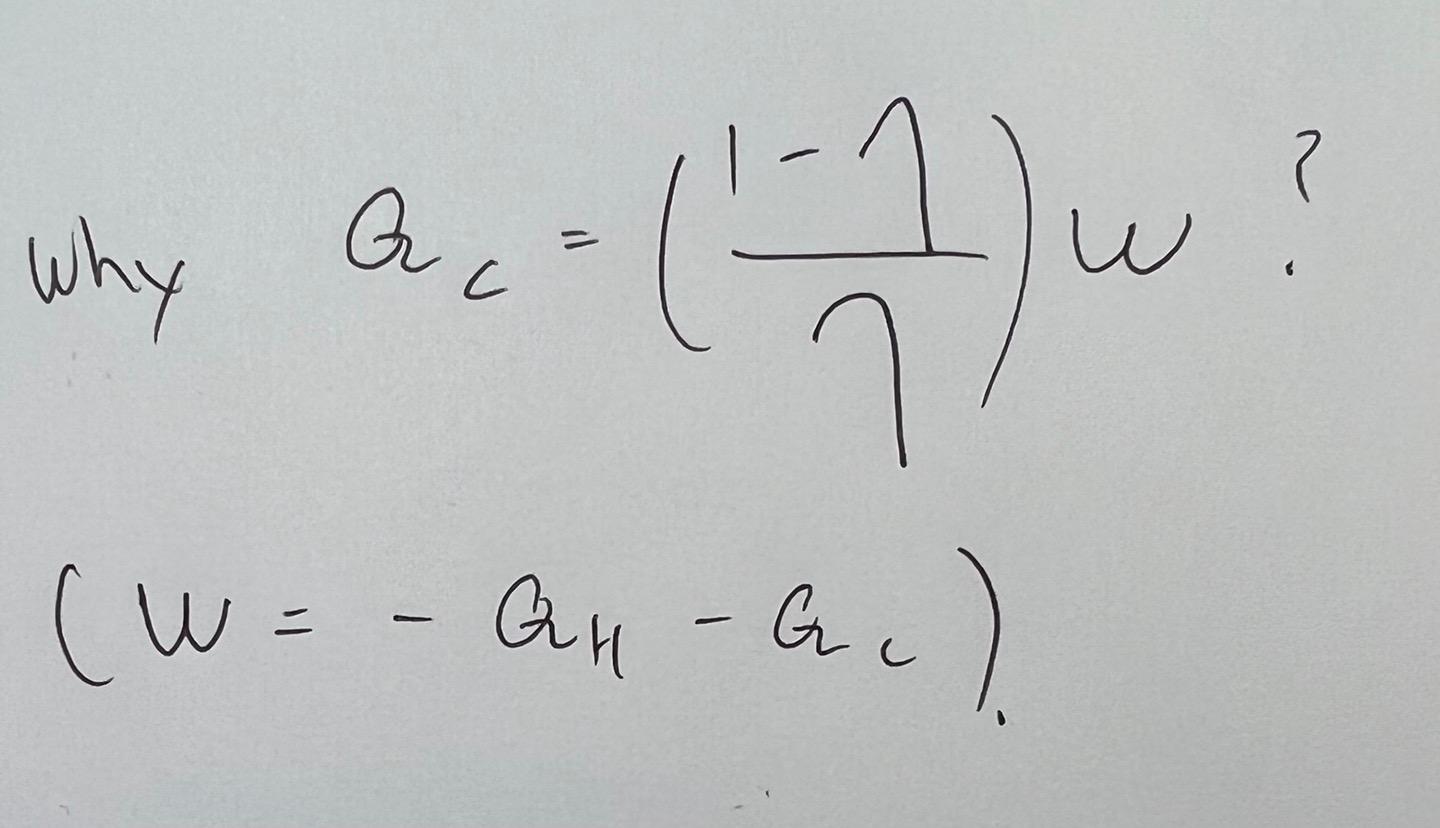 Why Q_c = ( (1 - η) / η ) W ?
( W = - Q_H - Q_c ).